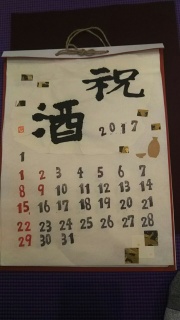 祝
酒
2017
1
1 2 3 4 5 6 7
8 9 10 11 12 13 14
15 16 17 18 19 20 21
22 23 24 25 26 27 28
29 30 31